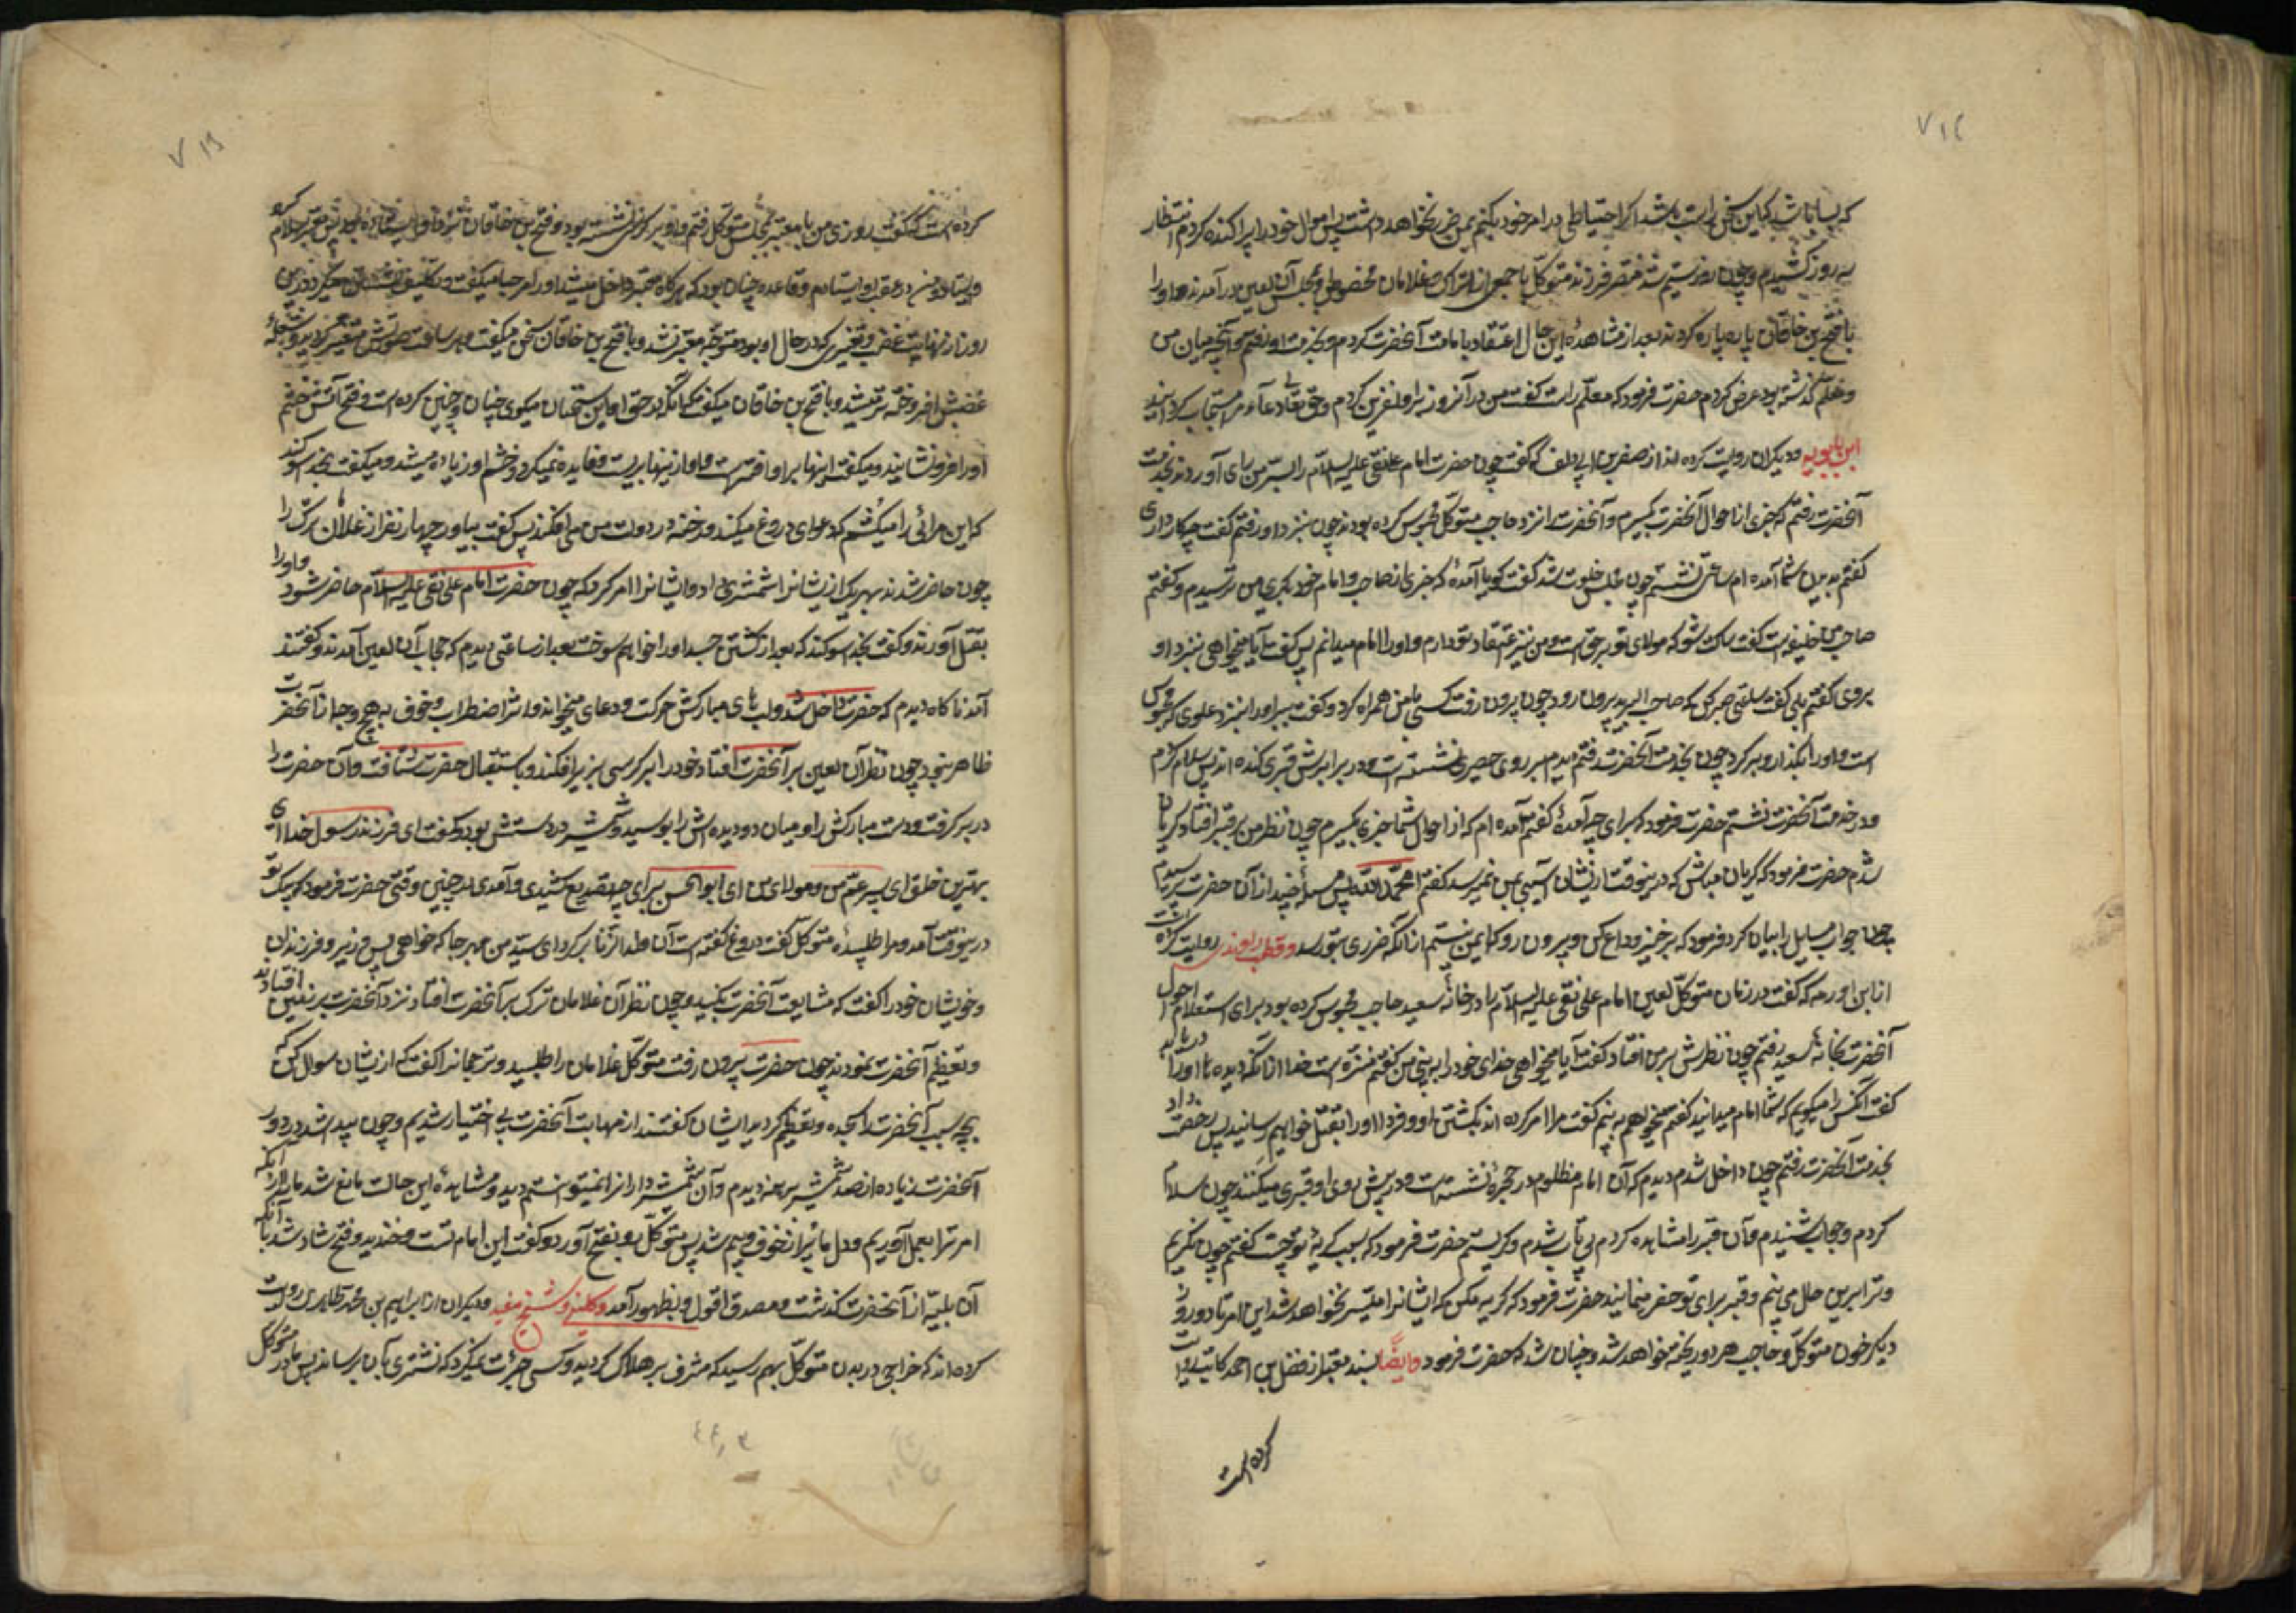 ۷۱۴
که بسا باشد که این سخن راست باشد اگر احتیاطی در امر خود بکنم بمن ضرر نخواهد داشت پس اموال خود را پراکنده کردم و انتظار
سه روز کشیدم و چون روز سیم شد منتصر فرزند متوکل با جمعی از اتراک و غلامان مخصوص او بمجلس آن لعین درآمدند و او را
با فتح بن خاقان پاره پاره کردند بعد از مشاهدهٔ این حال اعتقاد بامامت آنحضرت کردم و بخدمت او رفتم و آنچه میان من
و معلم گذشته بود عرض کردم حضرت فرمود که معلم راست گفت من در آنروز بر او نفرین کردم و حق تعالی دعاء مرا مستجاب گردانید
ابن بابویه و دیگران روایت کرده اند از صقر بن ابی دلف که گفت چون حضرت امام علی نقی علیه السلام را بسر من رای آوردند بخدمت
آنحضرت رفتم که خبری از احوال آنحضرت بگیرم و آنحضرت را نزد حاجب متوکل محبوس کرده بودند چون بنزد او رفتم گفت چکار داری
گفتم بدیدن شما آمده ام ساعتی نشستم چون مجلس خلوت شد گفت گویا آمدهٔ که خبری از صاحب و امام خود بگیری من ترسیدم و گفتم
صاحب من خلیفه است گفت ساکت شو که مولای تو بر حق است و من نیز اعتقاد تو دارم و او را امام میدانم پس گفت آیا میخواهی بنزد او
بروی گفتم بلی گفت ساعتی صبر کن که صاحب البرید بیرون رود چون بیرون رفت کسی با من همراه کرد و گفت ببر او را بنزد علوی که محبوس
است و او را بگذار و برگرد چون بخدمت آنحضرت رفتم دیدم بر روی حصیری نشسته است و در برابرش قبری کنده اند پس سلام کردم
و در خدمت آنحضرت نشستم حضرت فرمود که برای چه آمدهٔ گفتم آمده ام که از احوال شما خبری بگیرم چون نظر من بر قبر افتاد گریان
شدم حضرت فرمود که گریان مباش که درینوقت از یشان آسیبی بمن نمیرسد گفتم الحمد لله پس مسئلهٔ چند از آن حضرت پرسیدم
چون جواب مسایل را بیان کرد فرمود که برخیز و وداع کن و بیرون رو که ایمن نیستم از انکه ضرری بتو رسد و قطب راوندی روایت کرده است
از ابن اورمه که گفت در زمان متوکل لعین امام علی نقی علیه السلام را در خانهٔ سعید حاجب محبوس کرده بود برای استعلام احوال
آنحضرت بخانهٔ سعید رفتم چون نظرش بر من افتاد گفت آیا میخواهی خدای خود را ببینی من گفتم منزه است خدا از انکه دیدها او را دریابد
گفت آنکس را میگویم که شما امام میدانید گفتم میخواهم ببینم گفت مرا امر کرده اند بکشتن او و فردا او را بقتل خواهم رسانید پس رخصت داد
بخدمت آنحضرت رفتم چون داخل شدم دیدم که آن امام مظلوم در حجرهٔ نشسته است و در پیش روی او قبری میکنند چون سلام
کردم و جواب شنیدم و آن قبر را مشاهده کردم بی تاب شدم و گریستم حضرت فرمود که سبب گریهٔ تو چیست گفتم چون نگریم
و ترا برین حال می بینم و قبر برای تو حفر مینمایند حضرت فرمود که گریه مکن که ایشانرا میسر نخواهد شد این امر تا دو روز
دیگر خون متوکل و حاجب هر دو ریخته خواهد شد و چنان شد که حضرت فرمود وایضًا بسند معتبر از فضل بن احمد کاتب روایت
کرده است
۷۱۵
کرده است که گفت روزی من با معتز بمجلس متوکل رفتم و او بر کرسی نشسته بود و فتح بن خاقان نزد او ایستاده بود پس معتز سلام کرد
و ایستاد و من در عقب او ایستادم و قاعده چنان بود که هرگاه معتز داخل میشد او را مرحبا میگفت و تکلیف نشستن میکرد درین
روز از نهایت غضب و تغییری که در حال او بود متوجه معتز نشد و با فتح بن خاقان سخن میگفت و هر ساعت صورتش متغیر گردید و شعلهٔ
غضبش افروخته تر میشد و با فتح بن خاقان میگفت که آنکه در حق او این سخنان میگوی چنان و چنین کرده است و فتح آتش خشم
او را فرو نشانید و میگفت اینها بر او افتراست و او از ینها بریست و فایده نمیکرد و خشم او زیاده میشد و میگفت بخدا سوکند
که این مرائی را میکشم که دعوای دروغ میکند و رخنه در دولت من می افکند پس گفت بیاور چهار نفر از غلامان ترک را
چون حاضر شدند بهر یک از یشانرا شمشیری داد و ایشانرا امر کرد که چون حضرت امام علی نقی علیه السلام حاضر شود او را
بقتل آورند و گفت بخدا سوکند که بعد از کشتن جسد او را خواهم سوخت بعد از ساعتی دیدم که حجاب آن لعین آمدند و گفتند
آمد ناگاه دیدم که حضرت داخل شد و لب های مبارکش حرکت و دعای میخواند و اثر اضطراب و خوف بهیچ وجه از آنحضرت
ظاهر نبود چون نظر آن لعین بر آنحضرت افتاد خود را از کرسی بزیر افکند و باستقبال حضرت شتافت و آن حضرت را
در بر گرفت و دست مبارکش را و میان دو دیده اش را بوسید و شمشیر در دستش بود و گفت ای فرزند رسول خدا ای
بهترین خلق ای پسر عم من و مولای من ای ابو الحسن برای چه تصدیع کشیدی و آمدی در چنین وقتی حضرت فرمود که پیک تو
درینوقت آمد و مرا طلبید متوکل گفت دروغ گفته است آن ولد الزنا برگرد ای سید من بهر جا که خواهی پس وزیر و فرزندان
و خویشان خود را گفت که مشایعت آنحضرت بکنید و چون نظر آن غلامان ترک بر آنحضرت افتاد نزد آنحضرت بر زمین افتادند
و تعظیم آنحضرت نمودند چون حضرت بیرون رفت متوکل غلامان را طلبید و ترجمانرا گفت که از یشان سوال کن که
بچه سبب آنحضرت را سجده و تعظیم کردید ایشان گفتند از مهابت آنحضرت بی اختیار شدیم و چون پیدا شد در دور
آنحضرت زیاده از صد شمشیر برهنه دیدم و آن شمشیر داران را نمیتوانستم دید و مشاهدهٔ این حالت مانع شد ما را از آنکه
امر ترا بعمل آوریم و دل ما پر از خوف و بیم شد پس متوکل رو بفتح آورد و گفت این امام تست و خندید و فتح شاد شد بآنکه
آن بلیه از آنحضرت گذشت و مصدق اقول او بظهور آمد و کلینی و شیخ مفید و دیگران از ابراهیم بن محمد طاهری روایت
کرده اند که خراجی در بدن متوکل بهم رسید که مشرف بر هلاک گردید و کسی جرأت نمیکرد که نشتری بآن برساند پس مادر متوکل